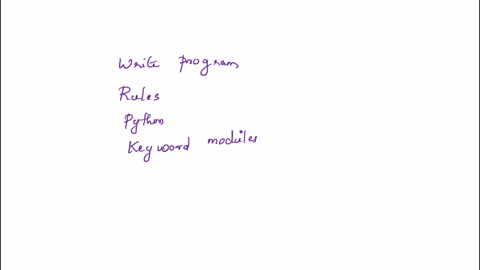 Write program
Rules
Python
Keyword modules